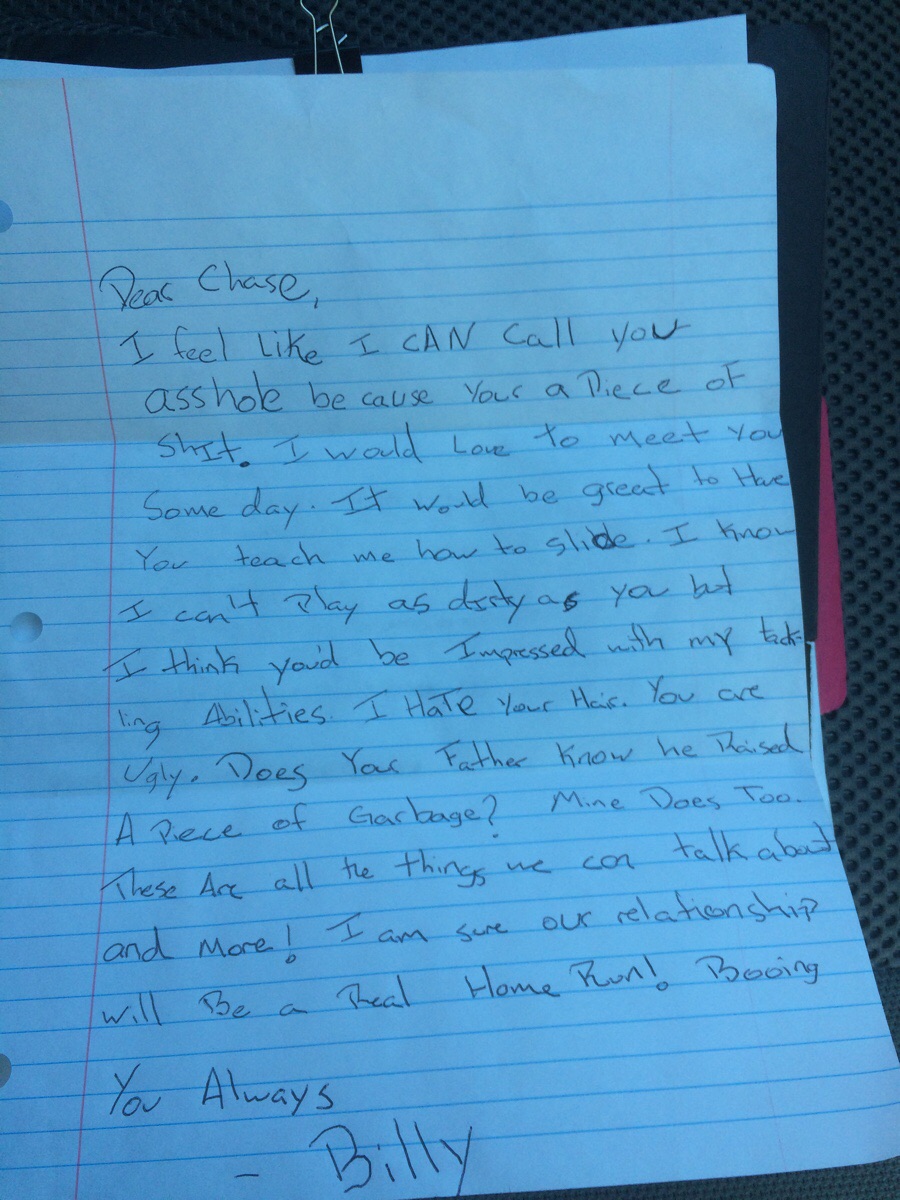 Dear Chase,
I feel like I CAN Call you
asshole because your a Piece of
Shit. I would Love to meet you
Some day. It would be great to Have
You teach me how to slide. I know
I can't Play as dirty as you but
I think you'd be Impressed with my tack-
ling Abilities. I HaTe Your Hair. You are
Ugly. Does Your Father Know he Raised
A Piece of Garbage? Mine Does Too.
These Are all the things we can talk about
and More! I am sure our relationship
will Be a Real Home Run! Booing
You Always
- Billy